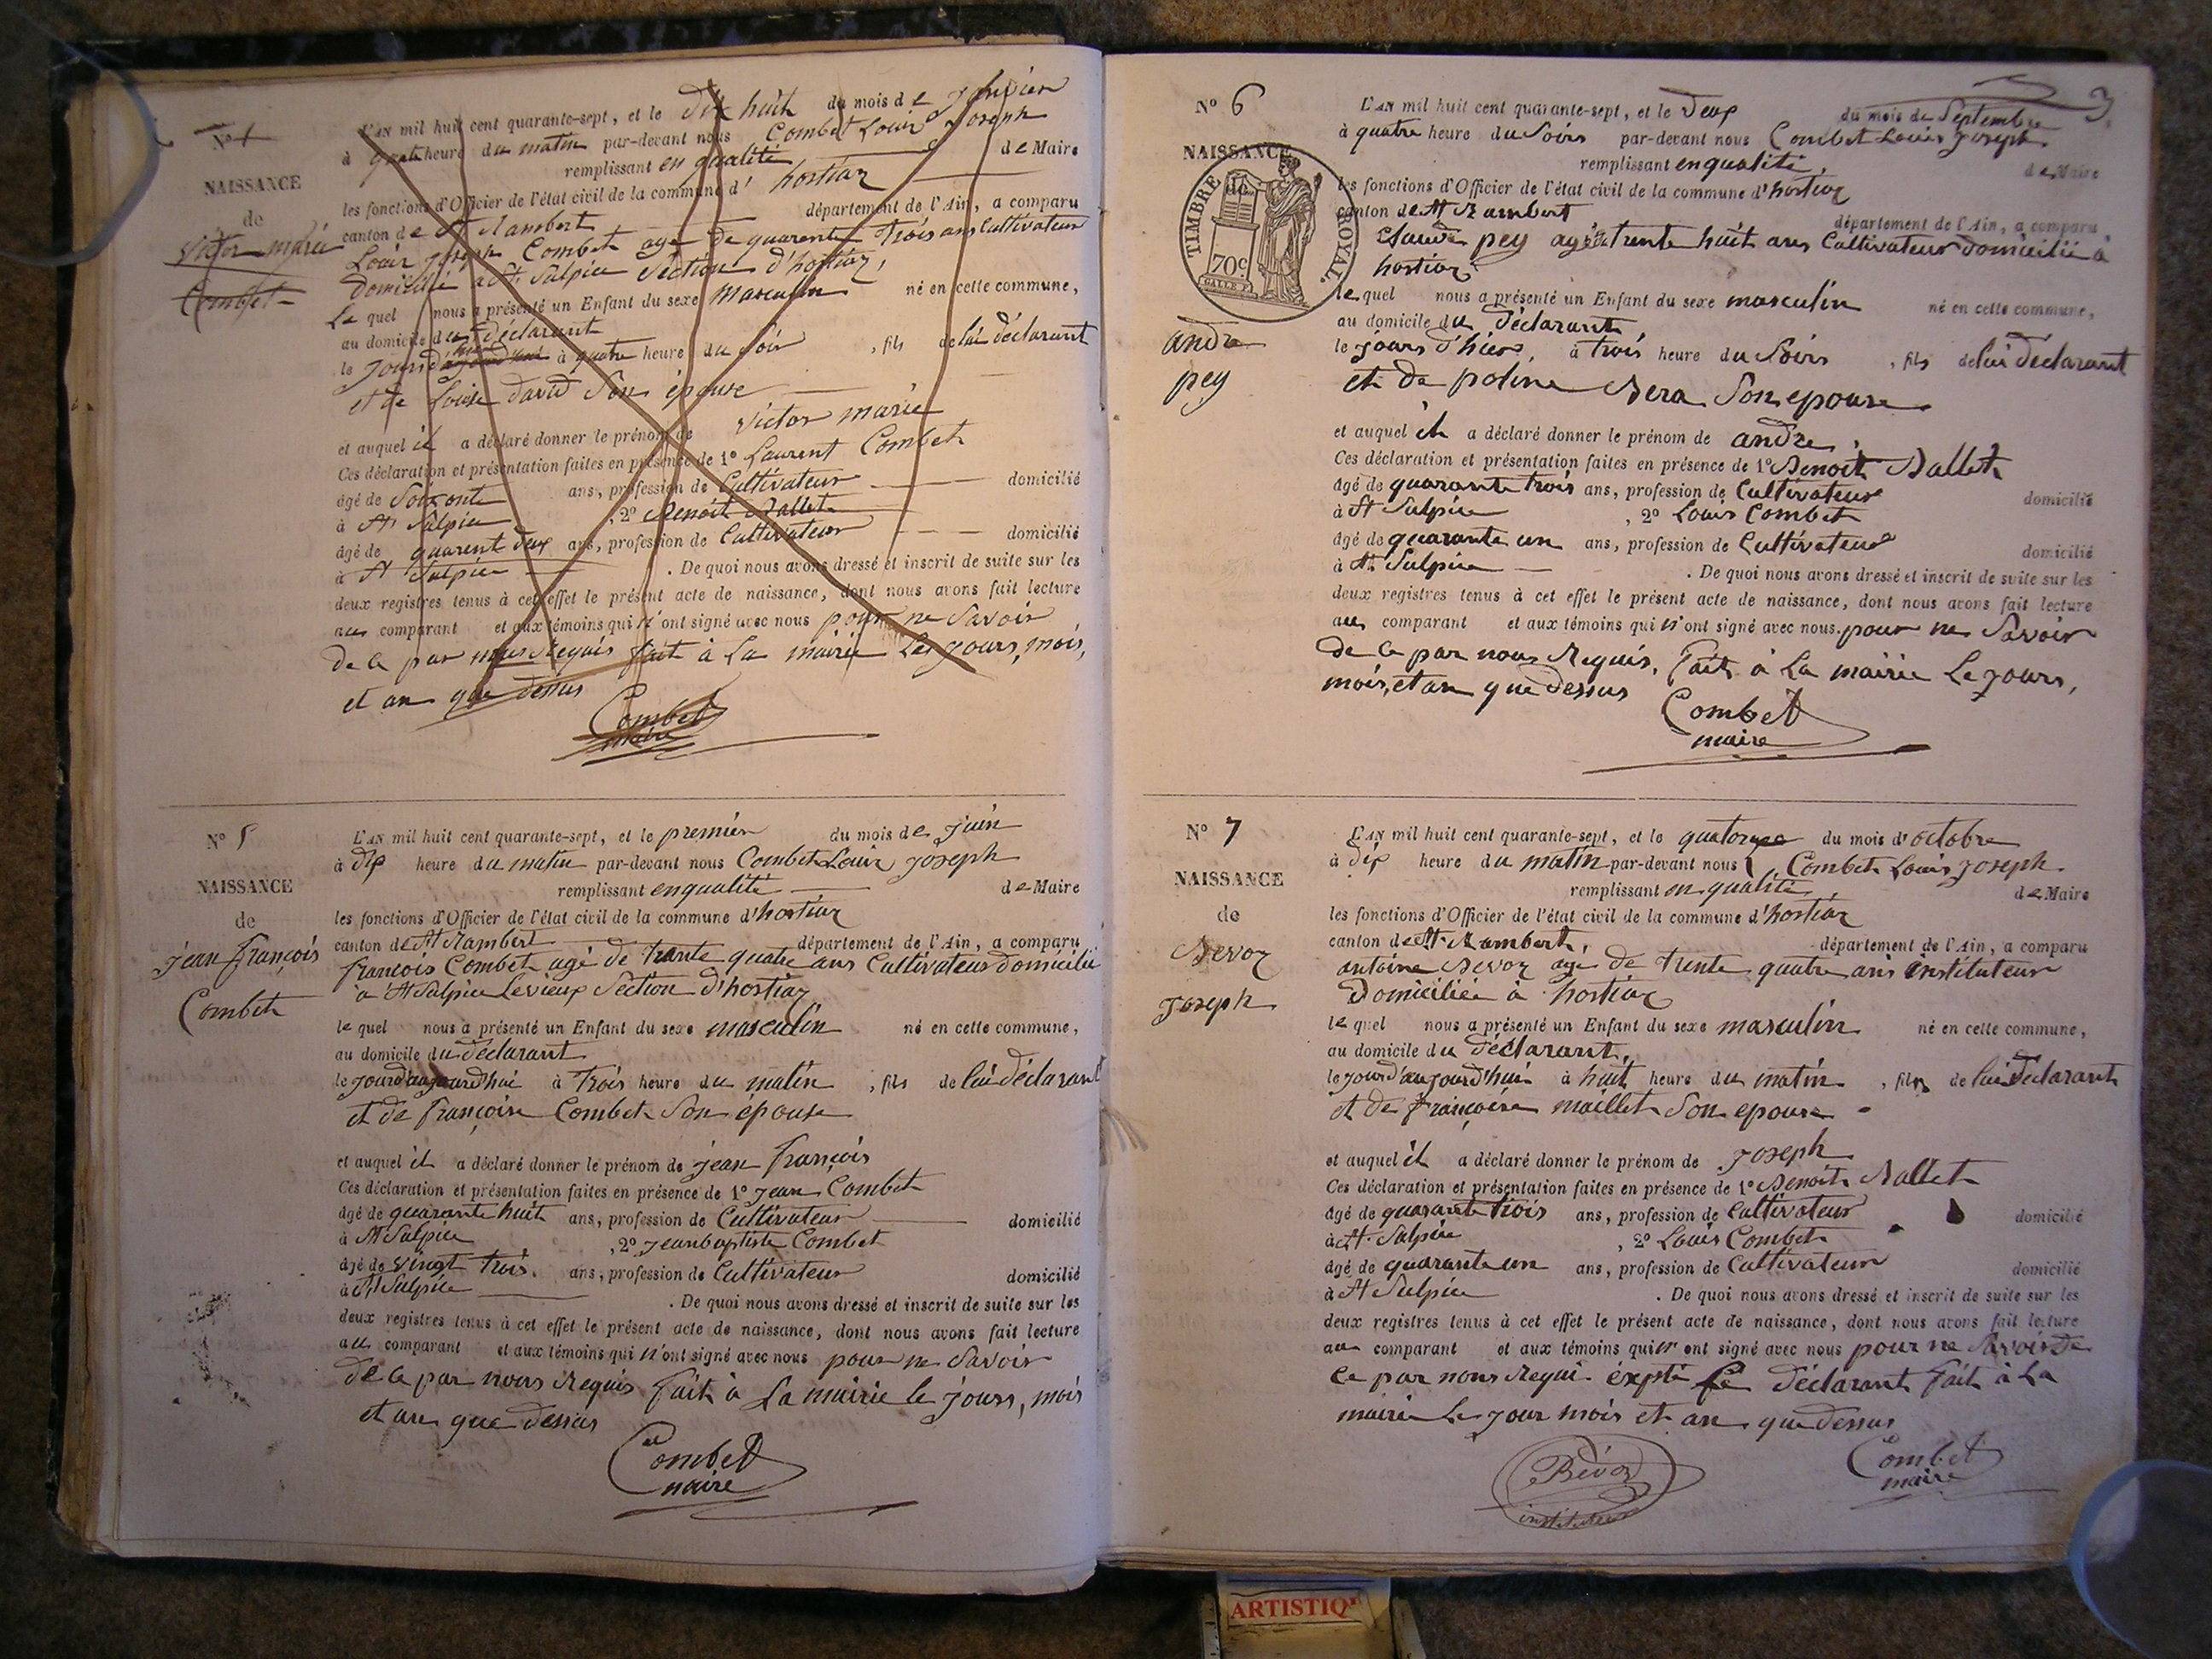 N° 1
NAISSANCE
de
Victor marie
Combet
L'AN mil huit cent quarante-sept, et le Dix huit du mois de Janvier
à quatre heure du matin par-devant nous Combet Louis Joseph
remplissant en qualité de Maire
les fonctions d'Officier de l'état civil de la commune d' hostiaz
canton de St Rambert département de l'Ain, a comparu
Louis Joseph Combet agé de quarente trois ans Cultivateur
domicilié a St Sulpice Section d'hostiaz,
Le quel nous a présenté un Enfant du sexe masculin né en cette commune,
au domicile du déclarant
le jour à quatre heure du soir , fils de lui déclarant
et de Louise david Son épouse
et auquel il a déclaré donner le prénom de Victor marie
Ces déclaration et présentation faites en présence de 1° Laurent Combet
âgé de Soixante ans, profession de Cultivateur domicilié
à St Sulpice , 2° Benoit Ballet
âgé de quarent deux ans, profession de Cultivateur domicilié
à St Sulpice . De quoi nous avons dressé et inscrit de suite sur les
deux registres tenus à cet effet le présent acte de naissance, dont nous avons fait lecture
au comparant et aux témoins qui n'ont signé avec nous pour ne Savoir
de ce par nous Requis fait à La mairie Les jours, mois,
et an que dessus
Combet
maire
N° 5
NAISSANCE
de
jean françois
Combet
L'AN mil huit cent quarante-sept, et le premier du mois de juin
à dix heure du matin par-devant nous Combet Louis Joseph
remplissant en qualité de Maire
les fonctions d'Officier de l'état civil de la commune d'hostiaz
canton de St Rambert département de l'Ain, a comparu
françois Combet agé de trante quatre ans Cultivateur domicilié
a St Sulpice Levieux Section d'hostiaz
le quel nous a présenté un Enfant du sexe masculin né en cette commune,
au domicile du déclarant
le jour d'aujourd'hui à trois heure du matin , fils de lui déclarant
et de françoise Combet Son épouse
et auquel il a déclaré donner le prénom de jean françois
Ces déclaration et présentation faites en présence de 1° jean Combet
âgé de quarante huit ans, profession de Cultivateur domicilié
à St Sulpice , 2° jean baptiste Combet
âgé de vingt trois. ans, profession de Cultivateur domicilié
à St Sulpice . De quoi nous avons dressé et inscrit de suite sur les
deux registres tenus à cet effet le présent acte de naissance, dont nous avons fait lecture
au comparant et aux témoins qui n'ont signé avec nous pour ne Savoir
de ce par nous Requis fait à La mairie le jours, mois
et an que dessus
Combet
maire
3
N° 6
NAISSANCE
de
TIMBRE ROYAL.
70c
andre
pey
L'AN mil huit cent quarante-sept, et le Deux du mois de Septembre
à quatre heure du Soirs par-devant nous Combet Louis Joseph
remplissant en qualité de Maire
les fonctions d'Officier de l'état civil de la commune d'hostiaz
canton de St Rambert département de l'Ain, a comparu
Claude pey agé trente huit ans Cultivateur domicilié à
hostiaz
le quel nous a présenté un Enfant du sexe masculin né en cette commune,
au domicile du Déclarant
le jours d'hier, à trois heure du Soirs , fils de lui déclarant
et de poline Bera Son epouse
et auquel il a déclaré donner le prénom de andre,
Ces déclaration et présentation faites en présence de 1° Benoit Ballet
âgé de quarante trois ans, profession de Cultivateur domicilié
à St Sulpice , 2° Louis Combet
âgé de quarante un ans, profession de Cultivateur domicilié
à St Sulpice . De quoi nous avons dressé et inscrit de suite sur les
deux registres tenus à cet effet le présent acte de naissance, dont nous avons fait lecture
au comparant et aux témoins qui n'ont signé avec nous. pour ne Savoir
de ce par nous Requis, Fait à La mairie Le jours,
mois, et an que dessus
Combet
maire
N° 7
NAISSANCE
de
Bevoz
joseph
L'AN mil huit cent quarante-sept, et le quatorze du mois d'octobre
à dix heure du matin par-devant nous Combet Louis joseph
remplissant en qualité de Maire
les fonctions d'Officier de l'état civil de la commune d'hostiaz
canton de St Rambert, département de l'Ain, a comparu
antoine Bevoz agé de trente quatre ans instituteur
Domiciliée à hostiaz
le quel nous a présenté un Enfant du sexe masculin né en cette commune,
au domicile du déclarant,
le jour d'aujourd'hui à huit heure du matin , fils de lui déclarant
et de françoise maillet Son epouse
et auquel il a déclaré donner le prénom de Joseph
Ces déclaration et présentation faites en présence de 1° Benoit Ballet
âgé de quarante trois ans, profession de Cultivateur domicilié
à St Sulpice , 2° Louis Combet
âgé de quarante un ans, profession de Cultivateur domicilié
à St Sulpice . De quoi nous avons dressé et inscrit de suite sur les
deux registres tenus à cet effet le présent acte de naissance, dont nous avons fait lecture
au comparant et aux témoins qui n'ont signé avec nous pour ne Savoir de
ce par nous Requi expté le déclarant fait à La
mairie Le jour mois et an que dessus
Bévoz
instituteur
Combet
maire
ARTISTIQ